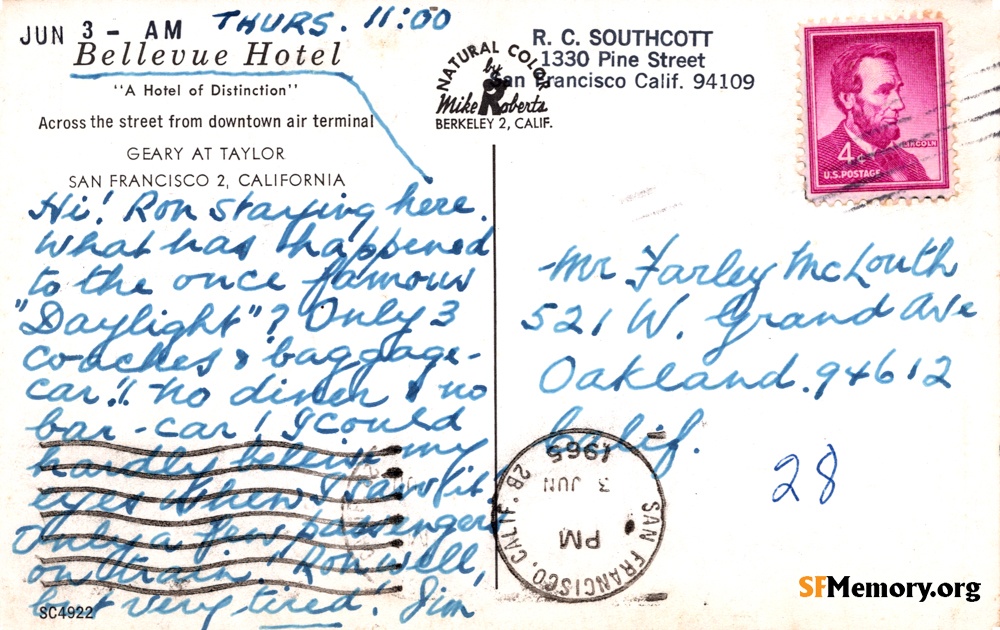 JUN 3 - AM THURS. 11:00
Bellevue Hotel
"A Hotel of Distinction"
Across the street from downtown air terminal
GEARY AT TAYLOR
SAN FRANCISCO 2, CALIFORNIA
Hi! Ron staying here.
What has happened
to the once famous
"Daylight"? Only 3
coaches & baggage-
car!! No diner & no
bar-car! I could
hardly believe my
eyes when I saw it.
Only a few passengers
on train! Ron well,
but very tired! Jim
SC4922
NATURAL COLOR
by
Mike Roberts
BERKELEY 2, CALIF.
R. C. SOUTHCOTT
1330 Pine Street
San Francisco Calif. 94109
LINCOLN
4¢
U.S. POSTAGE
Mr Farley McLouth
521 W. Grand Ave
Oakland. 94612
Calif.
28
SAN FRANCISCO, CALIF. 2B
PM
3 JUN
1965
SFMemory.org